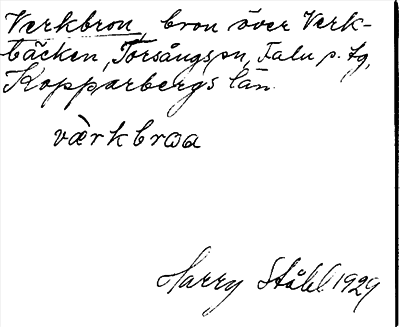 Verkbron, bron över Verk-
bäcken, Torsångs sn, Falu s. tg,
Kopparbergs län.
værkbrωa
Harry Ståhl 1929